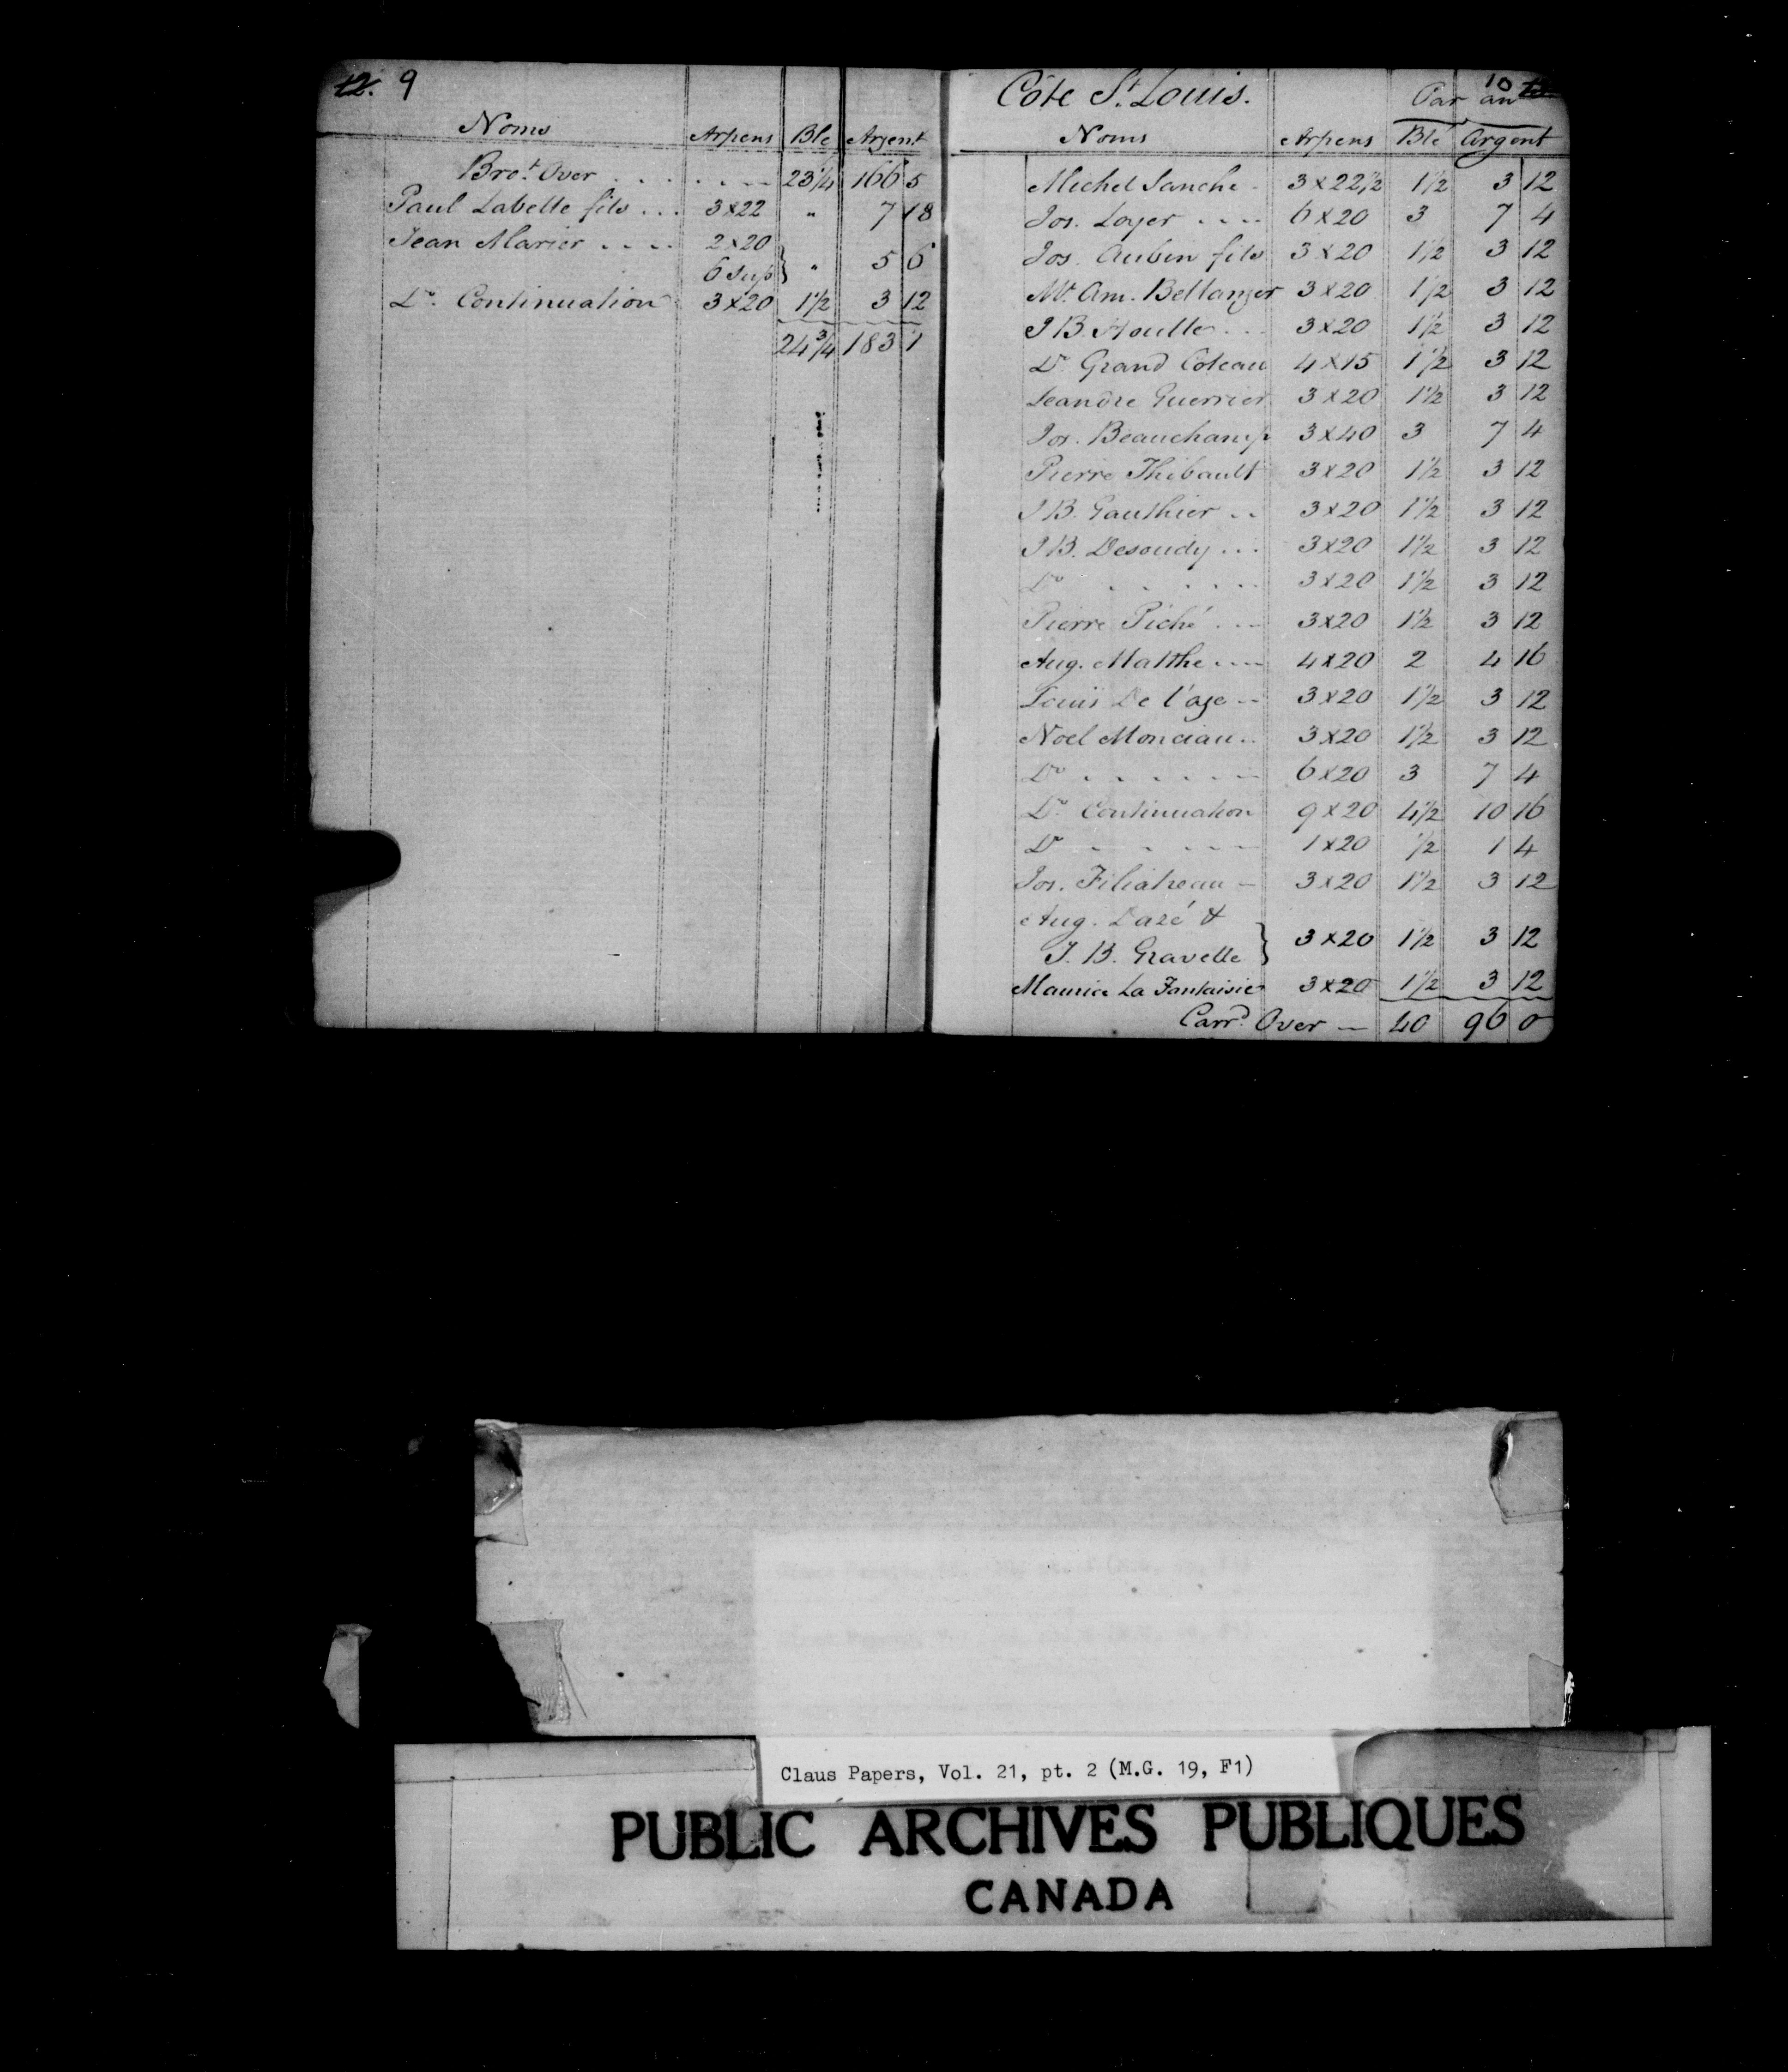 12. 9
Noms Arpens Blé Argent
Bro.t Over . . . . . . . 23 1/4 166 5
Paul Labelle fils . . . 3 x 22 " 7 18
Jean Marier . . . . 2 x 20
6 sup } " 5 6
D.o Continuation 3 x 20 1 1/2 3 12
24 3/4 183 1
10
Côte S.t Louis. Par an
Noms Arpens Blé Argent
Michel Sanche - 3 x 22 1/2 1 1/2 3 12
Jos. Loyer . . . . 6 x 20 3 7 4
Jos. Aubin fils 3 x 20 1 1/2 3 12
Am. Bellanger 3 x 20 1 1/2 3 12
J B. Houlle . . . 3 x 20 1 1/2 3 12
D.o Grand Coteau 4 x 15 1 1/2 3 12
Leandre Guerrier 3 x 20 1 1/2 3 12
Jos. Beauchamp 3 x 40 3 7 4
Pierre Thibault 3 x 20 1 1/2 3 12
J B. Gauthier . . 3 x 20 1 1/2 3 12
J B. Desoudy . . . 3 x 20 1 1/2 3 12
D.o . . . . . . 3 x 20 1 1/2 3 12
Pierre Piché . . . 3 x 20 1 1/2 3 12
Aug. Matthe . . . . 4 x 20 2 4 16
Louis De l'age - - 3 x 20 1 1/2 3 12
Noel Monciau . . 3 x 20 1 1/2 3 12
D.o . . . . . . 6 x 20 3 7 4
D.o Continuation 9 x 20 4 1/2 10 16
D.o - - - - - 1 x 20 1/2 1 4
Jos. Filiatreau - 3 x 20 1 1/2 3 12
Aug. Dazé &
J. B. Gravelle } 3 x 20 1 1/2 3 12
Maurice La Fantaisie 3 x 20 1 1/2 3 12
Carr.d Over — 40 96 0
Claus Papers, Vol. 21, pt. 2 (M.G. 19, F1)
PUBLIC ARCHIVES PUBLIQUES
CANADA